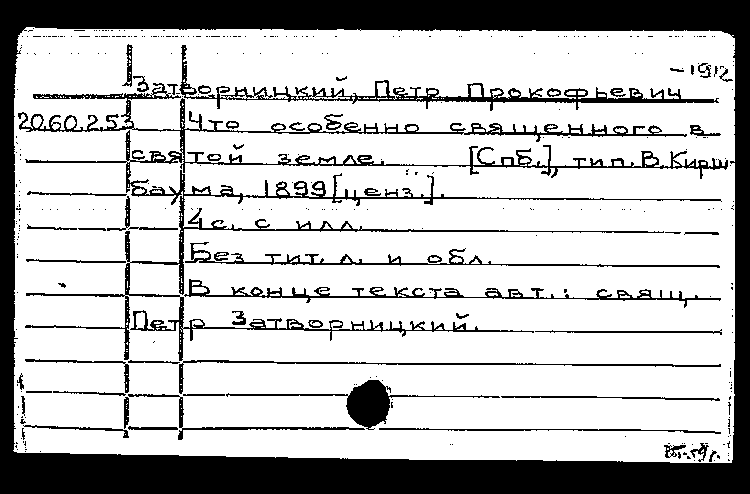 –1912
Затворницкий, Петр Прокофьевич
20.60.2.53 Что особенно священного в
святой земле. [Спб.], тип. В. Кирш-
баума, 1899 [ценз.].
4 с. с илл.
Без тит. л. и обл.
В конце текста авт.: свящ.
Петр Затворницкий.